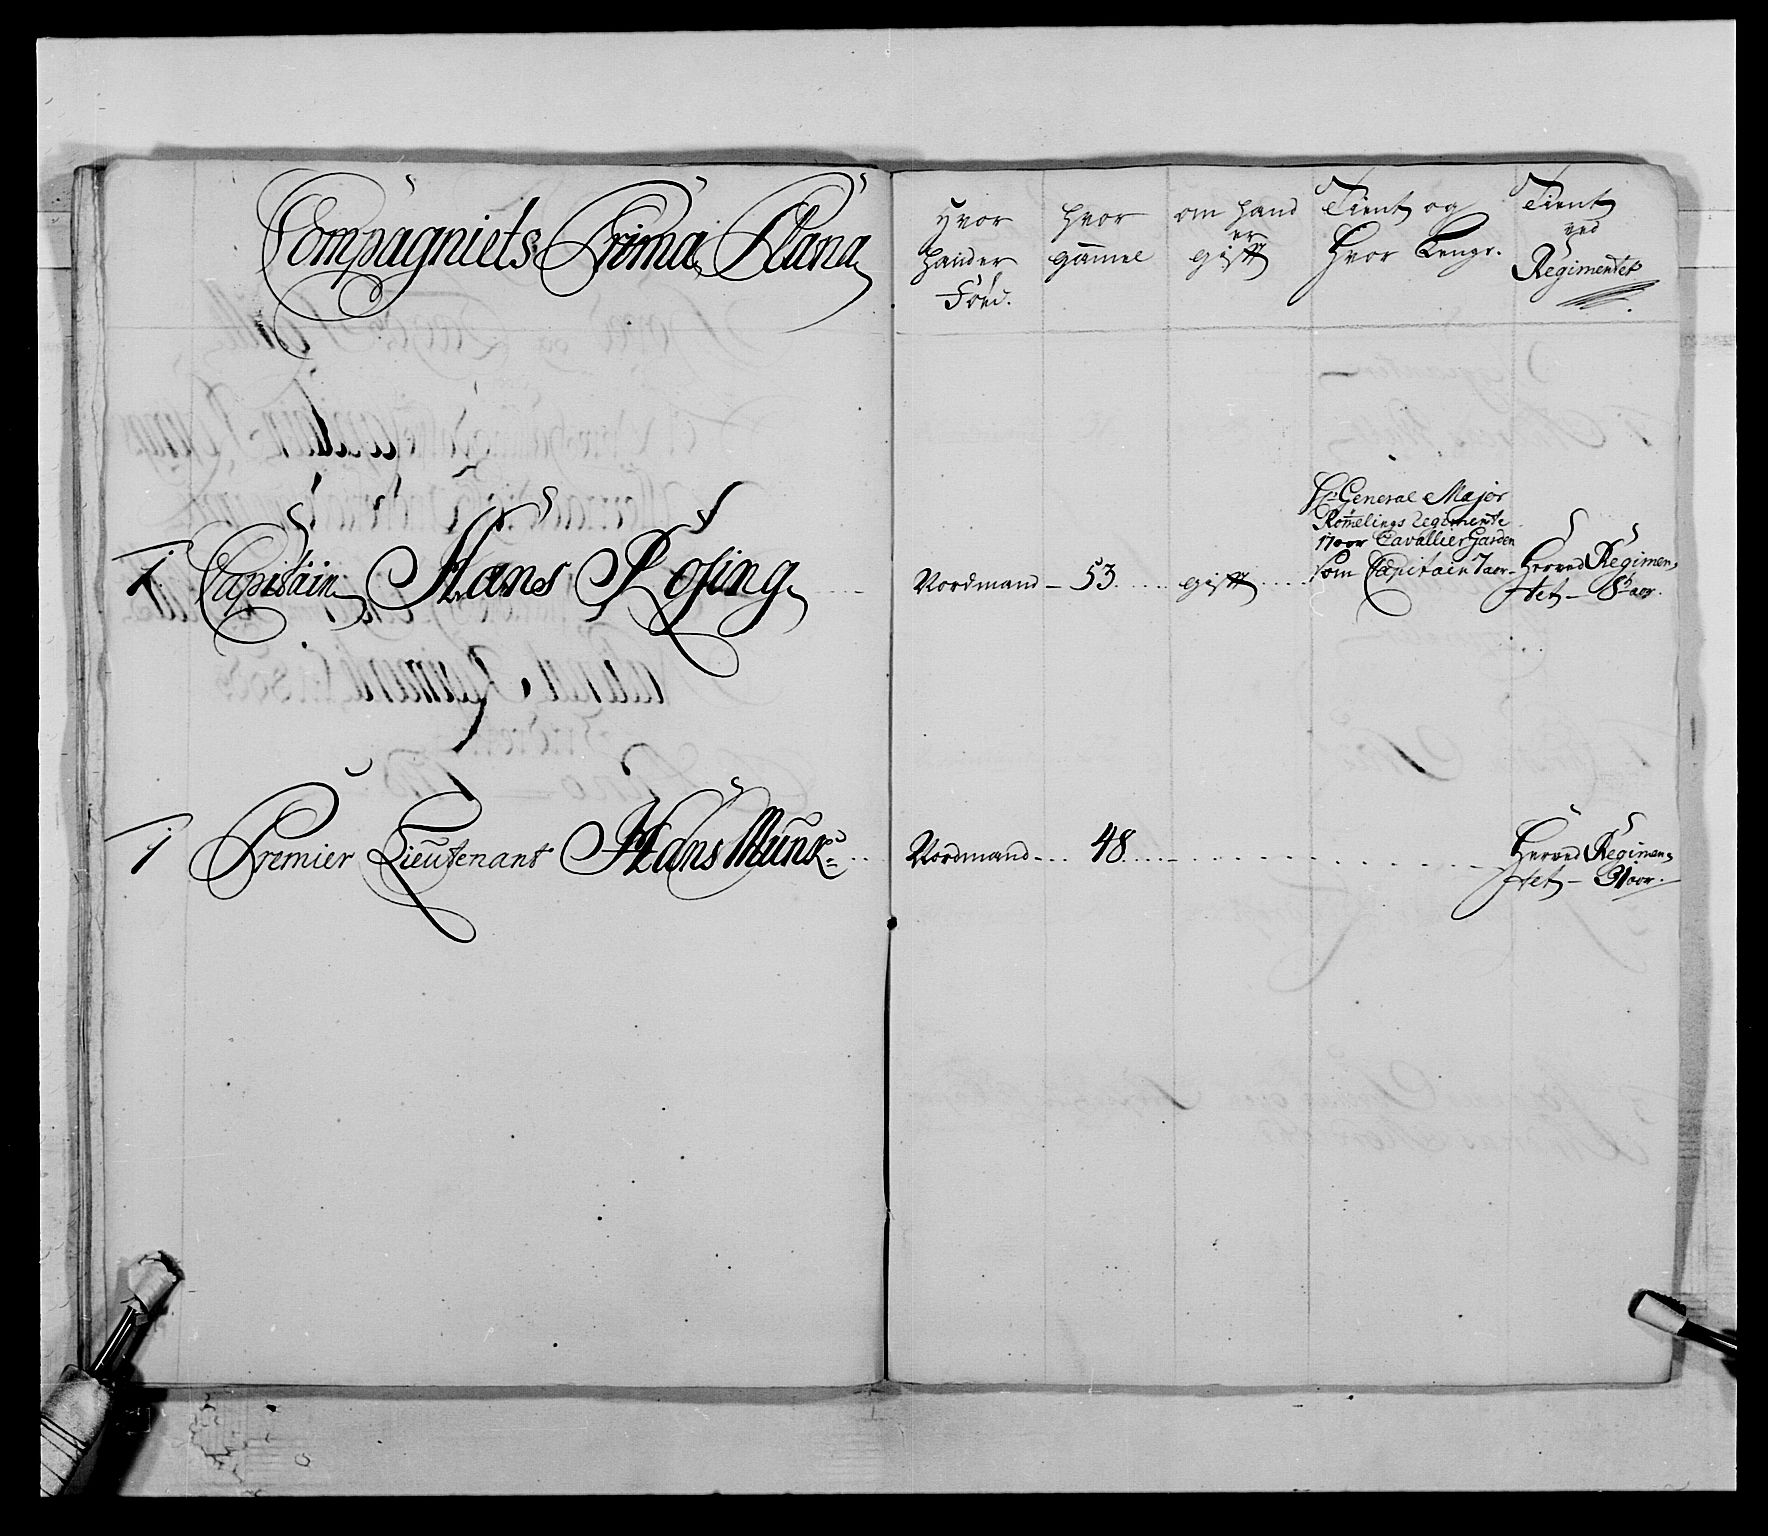 Compagniets Prima Plana
Hvor
hander
Föed.
hvor
gam̄el
om hand
er
gift
Tient og
Hvor Lenge.
Tient
ved
Regimentet
1 Capitain Hans Rosing
Nordmand – 53 gift
Hr: General Major
Röm̄elings Regimente
17 aar Cavallier Garden
som Capitain 7 aar
Herved Regimen=
tet – 8 aar.
1 Premier Lieutenant Hans Munk
Nordmand 48
Herved Regimen=
tet – 31 aar.